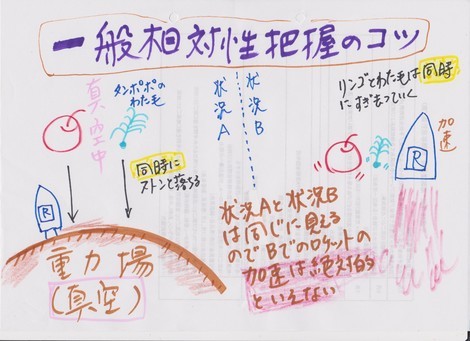 一般相対性把握のコツ
真空中
タンポポの
わた毛
状況A
状況B
リンゴとわた毛は同時
にすぎ去っていく
加速
同時に
ストンと落ちる
R
R
重力場
(真空)
状況Aと状況B
は同じに見える
のでBでのロケットの
加速は絶対的
といえない